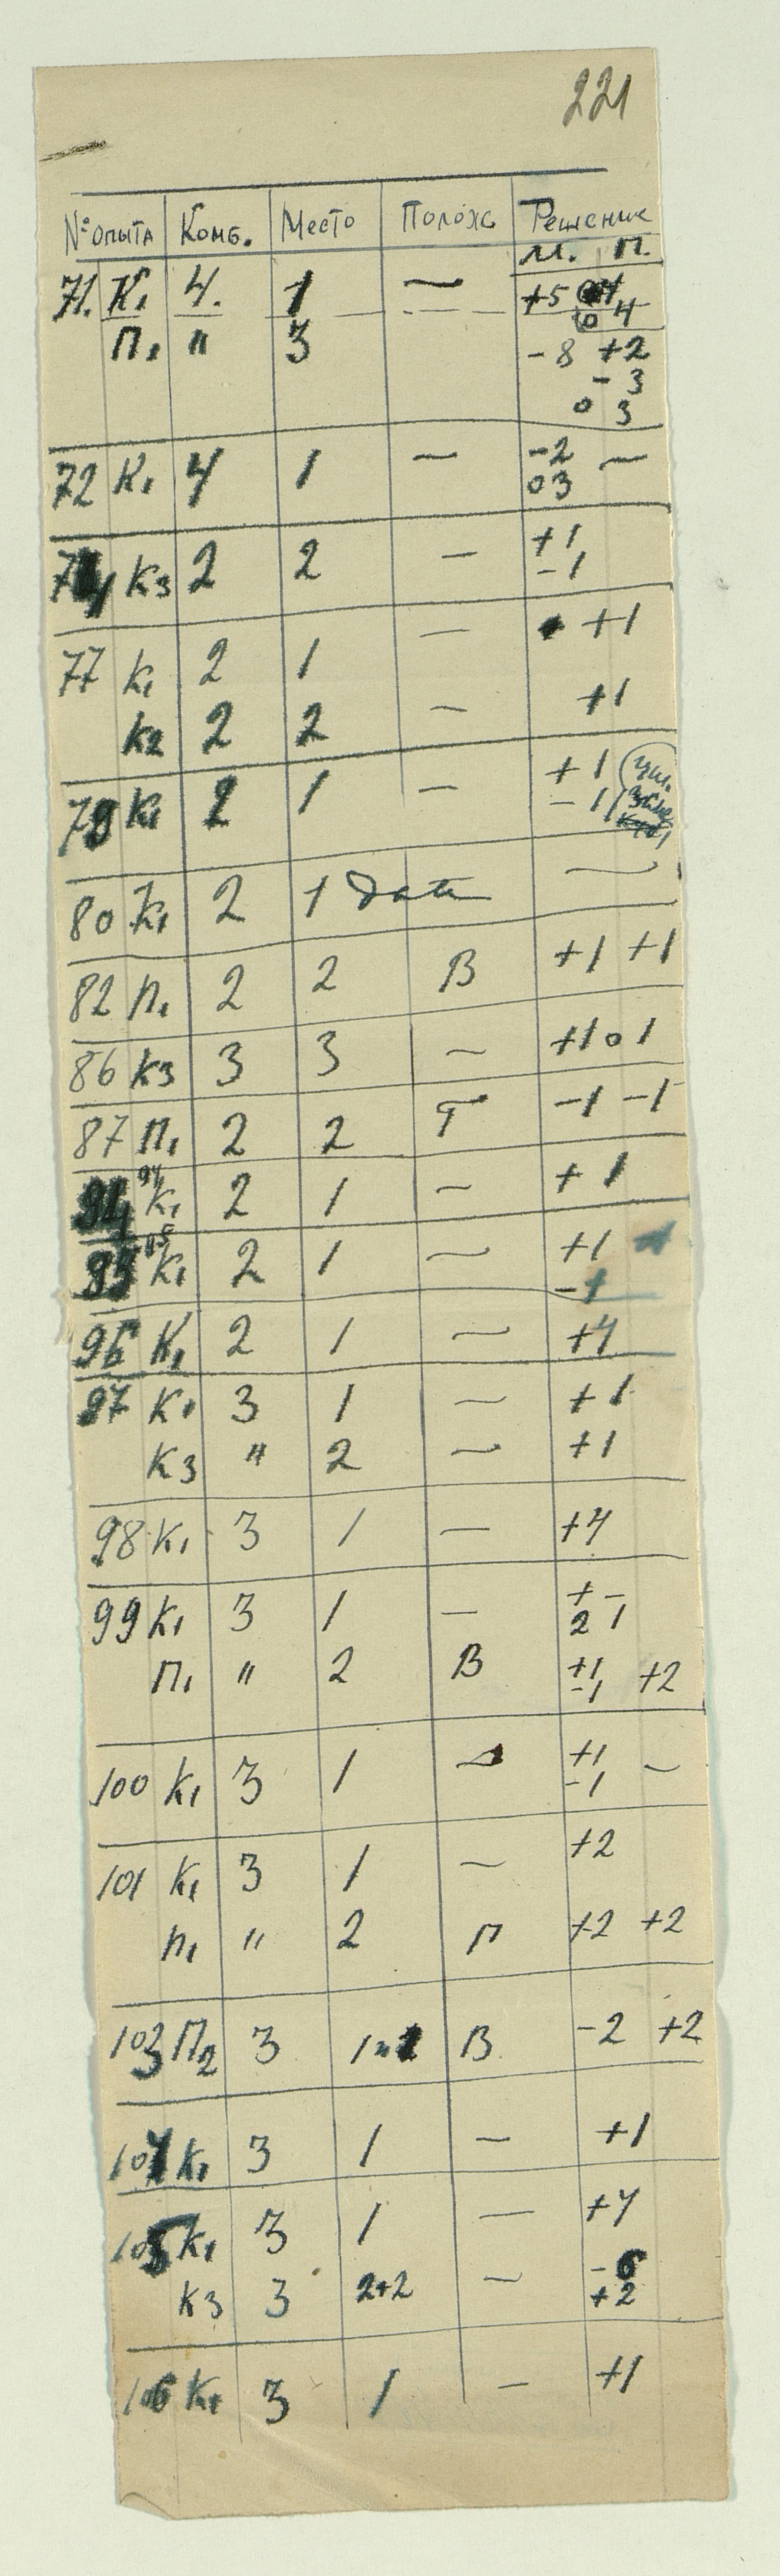 221
№ опыта Комб. Место Полож Решение
м. п.
71. К1 4. 1 — +5
0 4
П1 " 3 -8 +2
- 3
0 3
72 К1 4 1 — -2 —
03
74 К3 2 2 — +1
-1
77 К1 2 1 — +1
К2 2 2 — +1
79 К1 2 1 — +1
-1
80 К1 2 1 —
82 П1 2 2 В +1 +1
86 К3 3 3 — +1 0 1
87 П1 2 2 Г -1 -1
94 К1 2 1 — +1
95 К1 2 1 — +1
-1
96 К1 2 1 — +4
97 К1 3 1 — +1
К3 " 2 — +1
98 К1 3 1 — +4
99 К1 3 1 — + -
2 1
П1 " 2 В +1 +2
-1
100 К1 3 1 — +1 —
-1
101 К1 3 1 — +2
П1 " 2 П +2 +2
103 П2 3 В -2 +2
104 К1 3 1 — +1
105 К1 3 1 — +4
К3 3 2+2 — -6
+2
106 К1 3 1 — +1